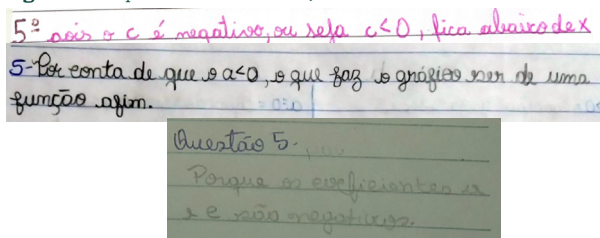 5º pois o c é negativo, ou seja c<0, fica abaixo de x
5- Por conta de que o a<0, o que faz o gráfico ser de uma
função afim.
Questão 5.
Porque os coeficientes
e são negativos.